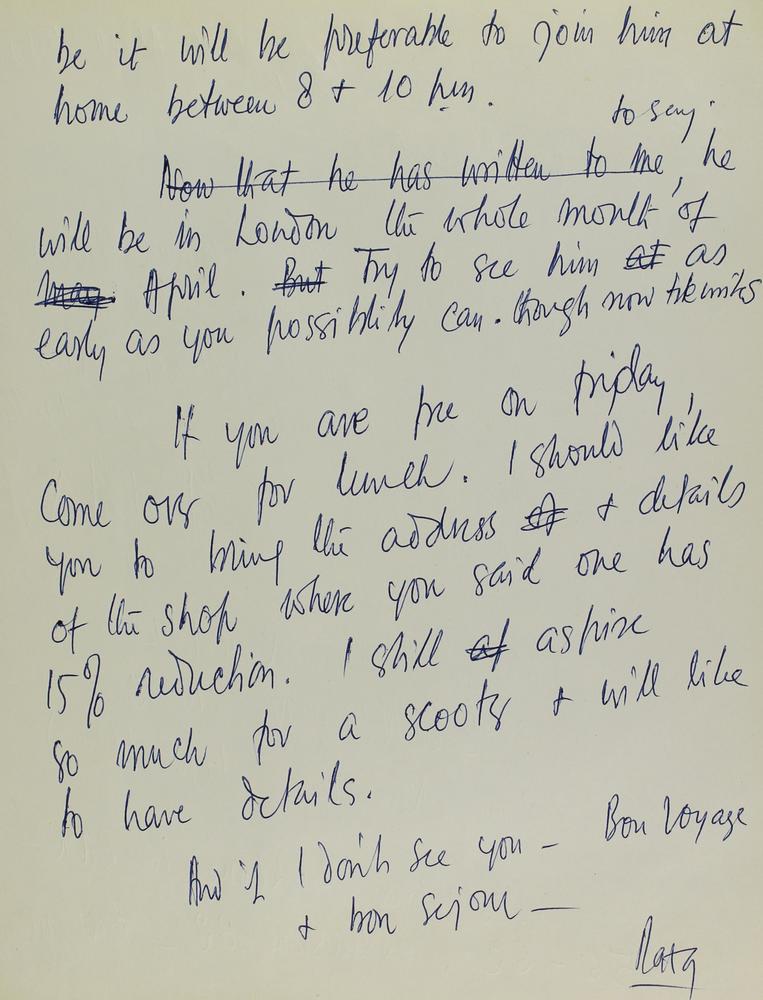 be it will be preferable to join him at
home between 8 + 10 hrs.
to say.
Now that he has written to me, he
will be in London the whole month of
may. April. But Try to see him at as
early as you possiblity can. though now he writes
If you are free on friday,
Come over for lunch. I should like
you to bring the address of + details
of the shop where you said one has
15% reduction. I still as aspire
so much for a scooter + will like
to have details.
And if I don't see you - Bon Voyage
+ bon sejour —
Raza